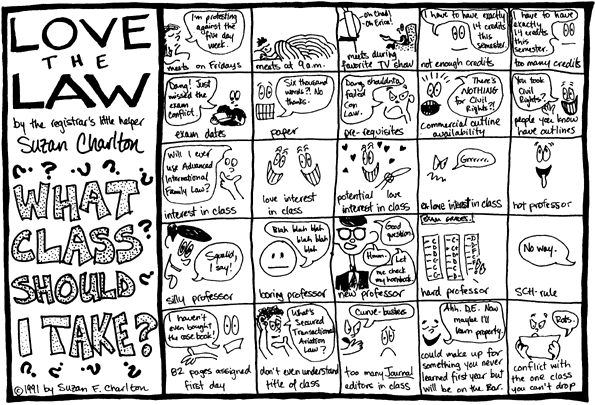 LOVE
THE
LAW
by the registrar's little helper
Suzan Charlton
WHAT
CLASS
SHOULD
I TAKE?
©1991 by Suzan F. Charlton
I'm protesting
against the
five day
week.
meets on Fridays
meets at 9 a.m.
oh Chad!
oh Erica!
meets during
favorite TV show
I have to have
exactly
14 credits
this
semester.
not enough credits
I have to have
exactly
14 credits
this
semester.
too many credits
Dang! Just
missed the
exam
conflict.
exam dates
Six thousand
words?! No
thanks.
paper
Dang, shouldnta
failed
Con
Law.
pre-requisites
There's
NOTHING
for Civil
Rights?!
commercial outline
availability
You took
Civil
Rights?
people you know
have outlines
Will I ever
use Advanced
International
Family Law?
interest in class
love interest
in class
potential love
interest in class
Grrrrr.
ex love interest in class
hot professor
Squalid,
I say!
silly professor
Blah blah blah
blah blah
blah
boring professor
Good
question.
Hmm.
Let
me check
my hornbook.
new professor
hard professor
No way.
SCH-rule
I haven't
even bought
the case book!
82 pages assigned
first day
What's
Secured
Transactional
Aviation
Law?
don't even understand
title of class
Curve-busters
too many Journal
editors in class
Ahh. D.E. Now
maybe I'll
learn property.
could make up for
something you never
learned first year but
will be on the Bar.
Rats.
conflict with
the one class
you can't drop